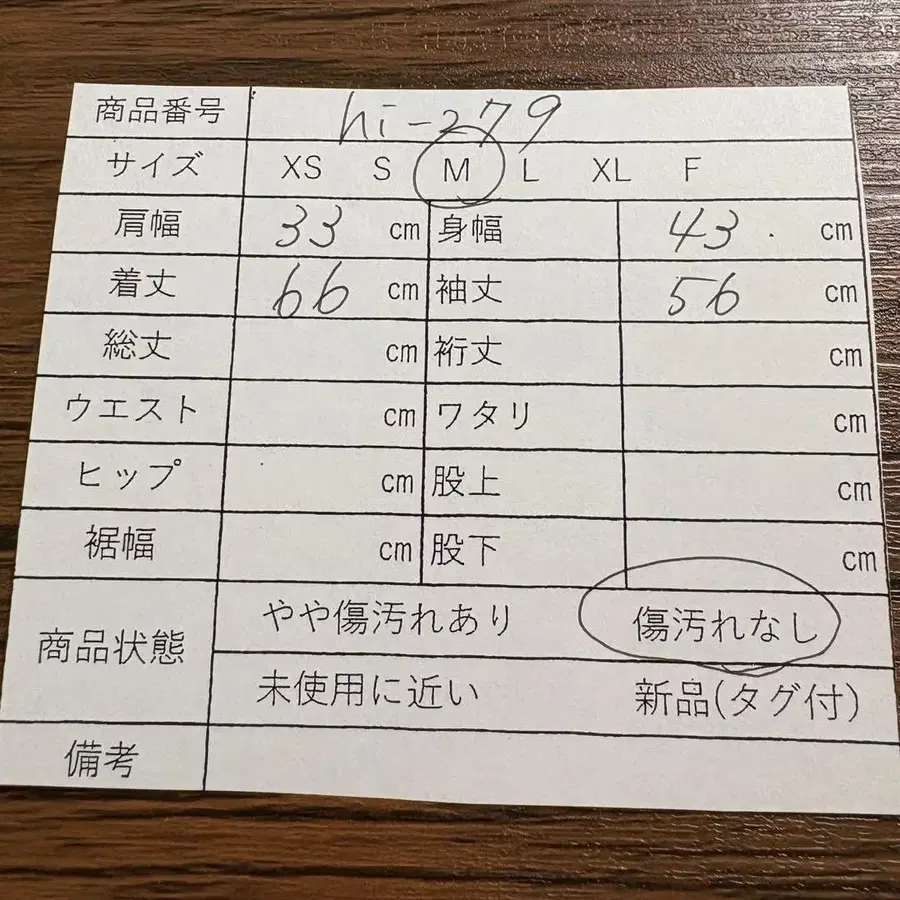 商品番号 hi-279
サイズ XS S M L XL F
肩幅 33 cm 身幅 43 cm
着丈 66 cm 袖丈 56 cm
総丈 cm 裄丈 cm
ウエスト cm ワタリ cm
ヒップ cm 股上 cm
裾幅 cm 股下 cm
商品状態 やや傷汚れあり 傷汚れなし
未使用に近い 新品(タグ付)
備考